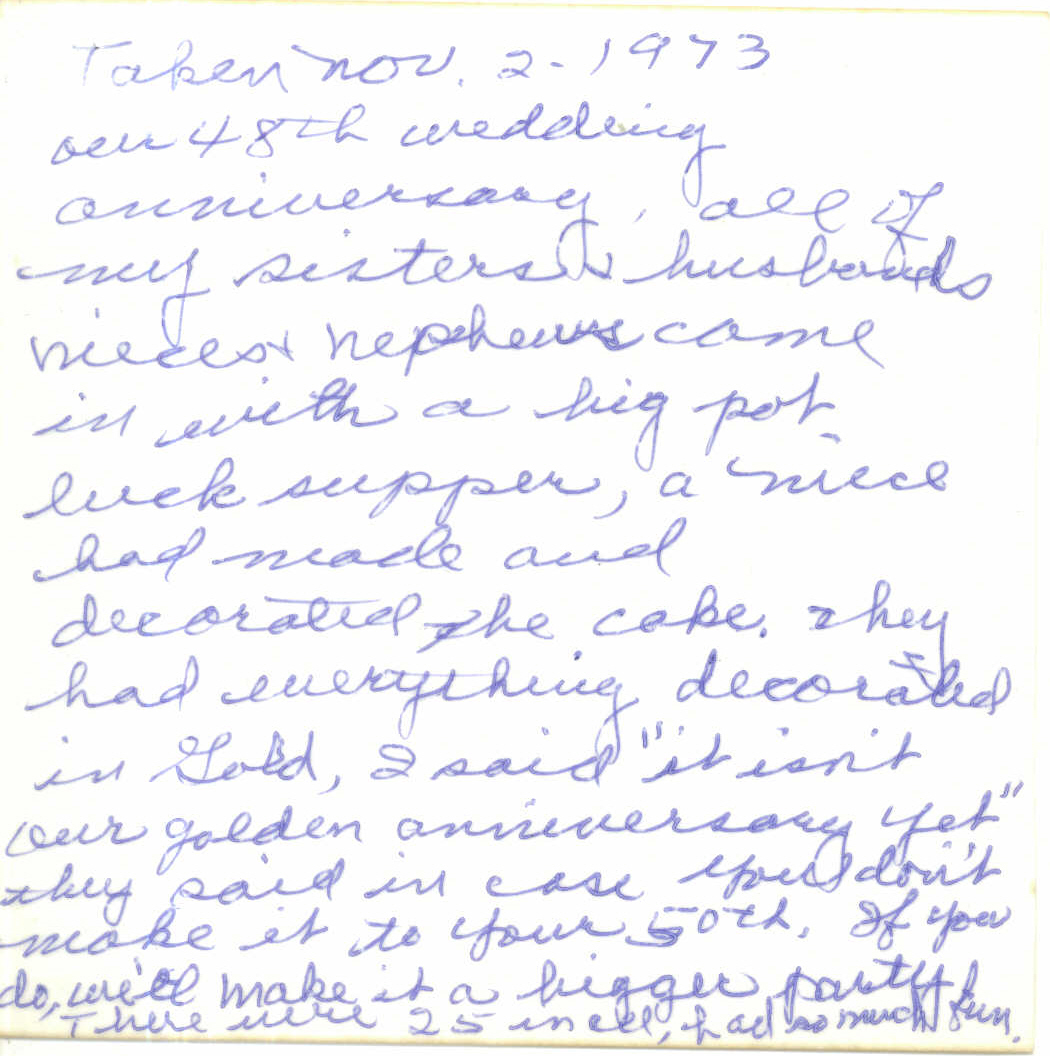 Taken Nov. 2 - 1973
our 48th wedding
anniversary, all of
my sisters & husbands
nieces & nephews came
in with a big pot
luck supper, a niece
had made and
decorated the cake. They
had everything decorated
in Gold, I said "it isn't
our golden anniversary yet"
they said in case you don't
make it to your 50th. If you
do, we'll make it a bigger party
There were 25 in all, had so much fun.